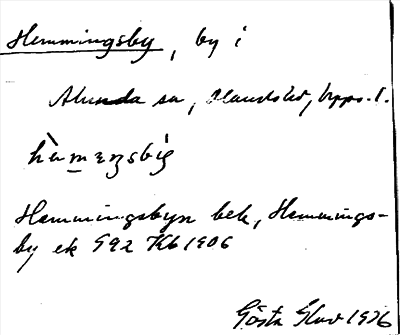 Hemmingsby, by i
Alunda sn, Olands hd, Upps. l.
hèmeŋsbý
Hemmingsbyn bek, Hemmings-
by ek 592 Kb 1906
Gösta 1926